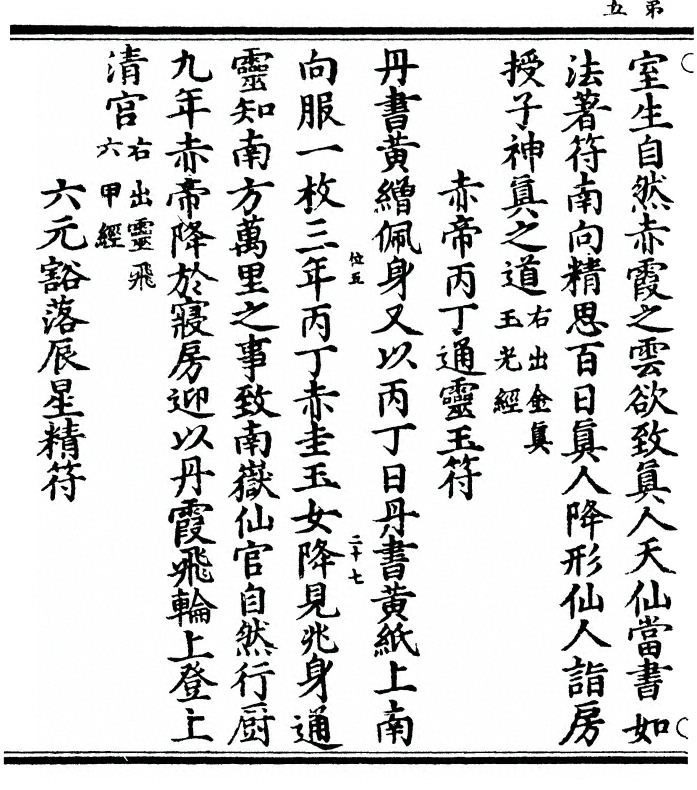 第五
室生自然赤霞之雲欲致眞人天仙當書如
法著符南向精思百日眞人降形仙人詣房
授子神眞之道右出金眞
玉光經
赤帝丙丁通靈玉符
丹書黃繒佩身又以丙丁日丹書黃紙上南
位五
二十七
向服一枚三年丙丁赤圭玉女降見兆身通
靈知南方萬里之事致南嶽仙官自然行厨
九年赤帝降於寢房迎以丹霞飛輪上登上
清宮右出靈飛
六甲經
六元豁落辰星精符